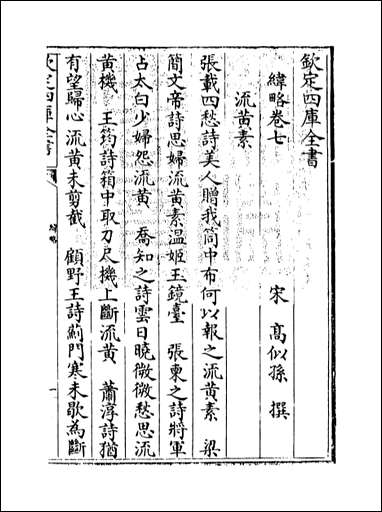 欽定四庫全書
緯略卷七
宋 高似孫 撰
流黃素
張載四愁詩美人贈我筒中布何以報之流黃素 梁
簡文帝詩思婦流黃素温姬玉鏡臺 張柬之詩將軍
占太白少婦怨流黃 喬知之詩雲日曉微微愁思流
黃機 王筠詩箱中取刀尺機上斷流黃 蕭淳詩猶
有望歸心流黃未剪截 顧野王詩薊門寒未歇為斷
欽定四庫全書
緯略
一